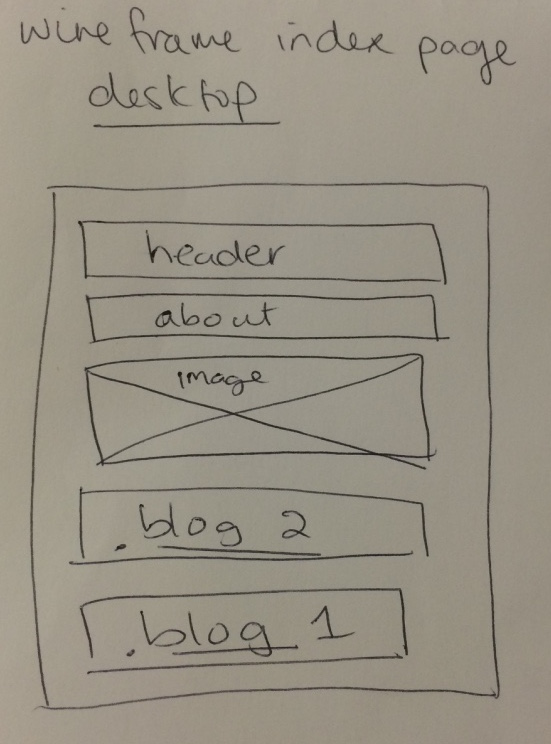 wire frame index page
desktop
header
about
image
.blog 2
.blog 1